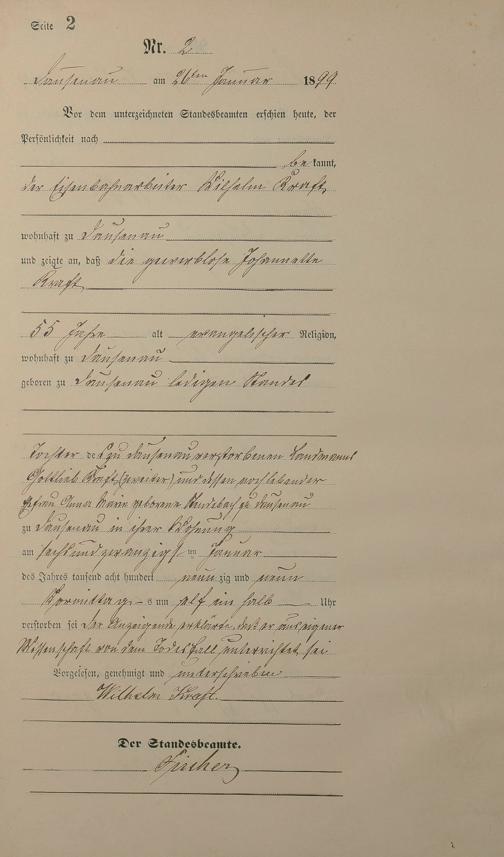 Seite 2
Nr. 2
Dausenau am 26ten Januar 1899
Vor dem unterzeichneten Standesbeamten erschien heute, der
Persönlichkeit nach
be kannt,
der Eisenbahnarbeiter Wilhelm Kraft,
wohnhaft zu Dausenau
und zeigte an, daß die gewerblose Johannette
Kraft
55 Jahre alt evangelischer Religion,
wohnhaft zu Dausenau
geboren zu Dausenau ledigen Standes
Tochter des zu Dausenau verstorbenen Landmanns
Gottlieb Kraft (zweiter) und dessen noch lebender
Ehefrau Anna Maria geborene zu Dausenau
zu Dausenau in ihrer Wohnung
am sechsundzwanzigsten Januar
des Jahres tausend acht hundert neun zig und neun
Vormittags um elf ein halb Uhr
verstorben sei Der Anzeigende erklärte, daß er aus eigener
Wissenschaft von dem Todesfall unterrichtet sei
Vorgelesen, genehmigt und unterschrieben
Wilhelm Kraft.
Der Standesbeamte.